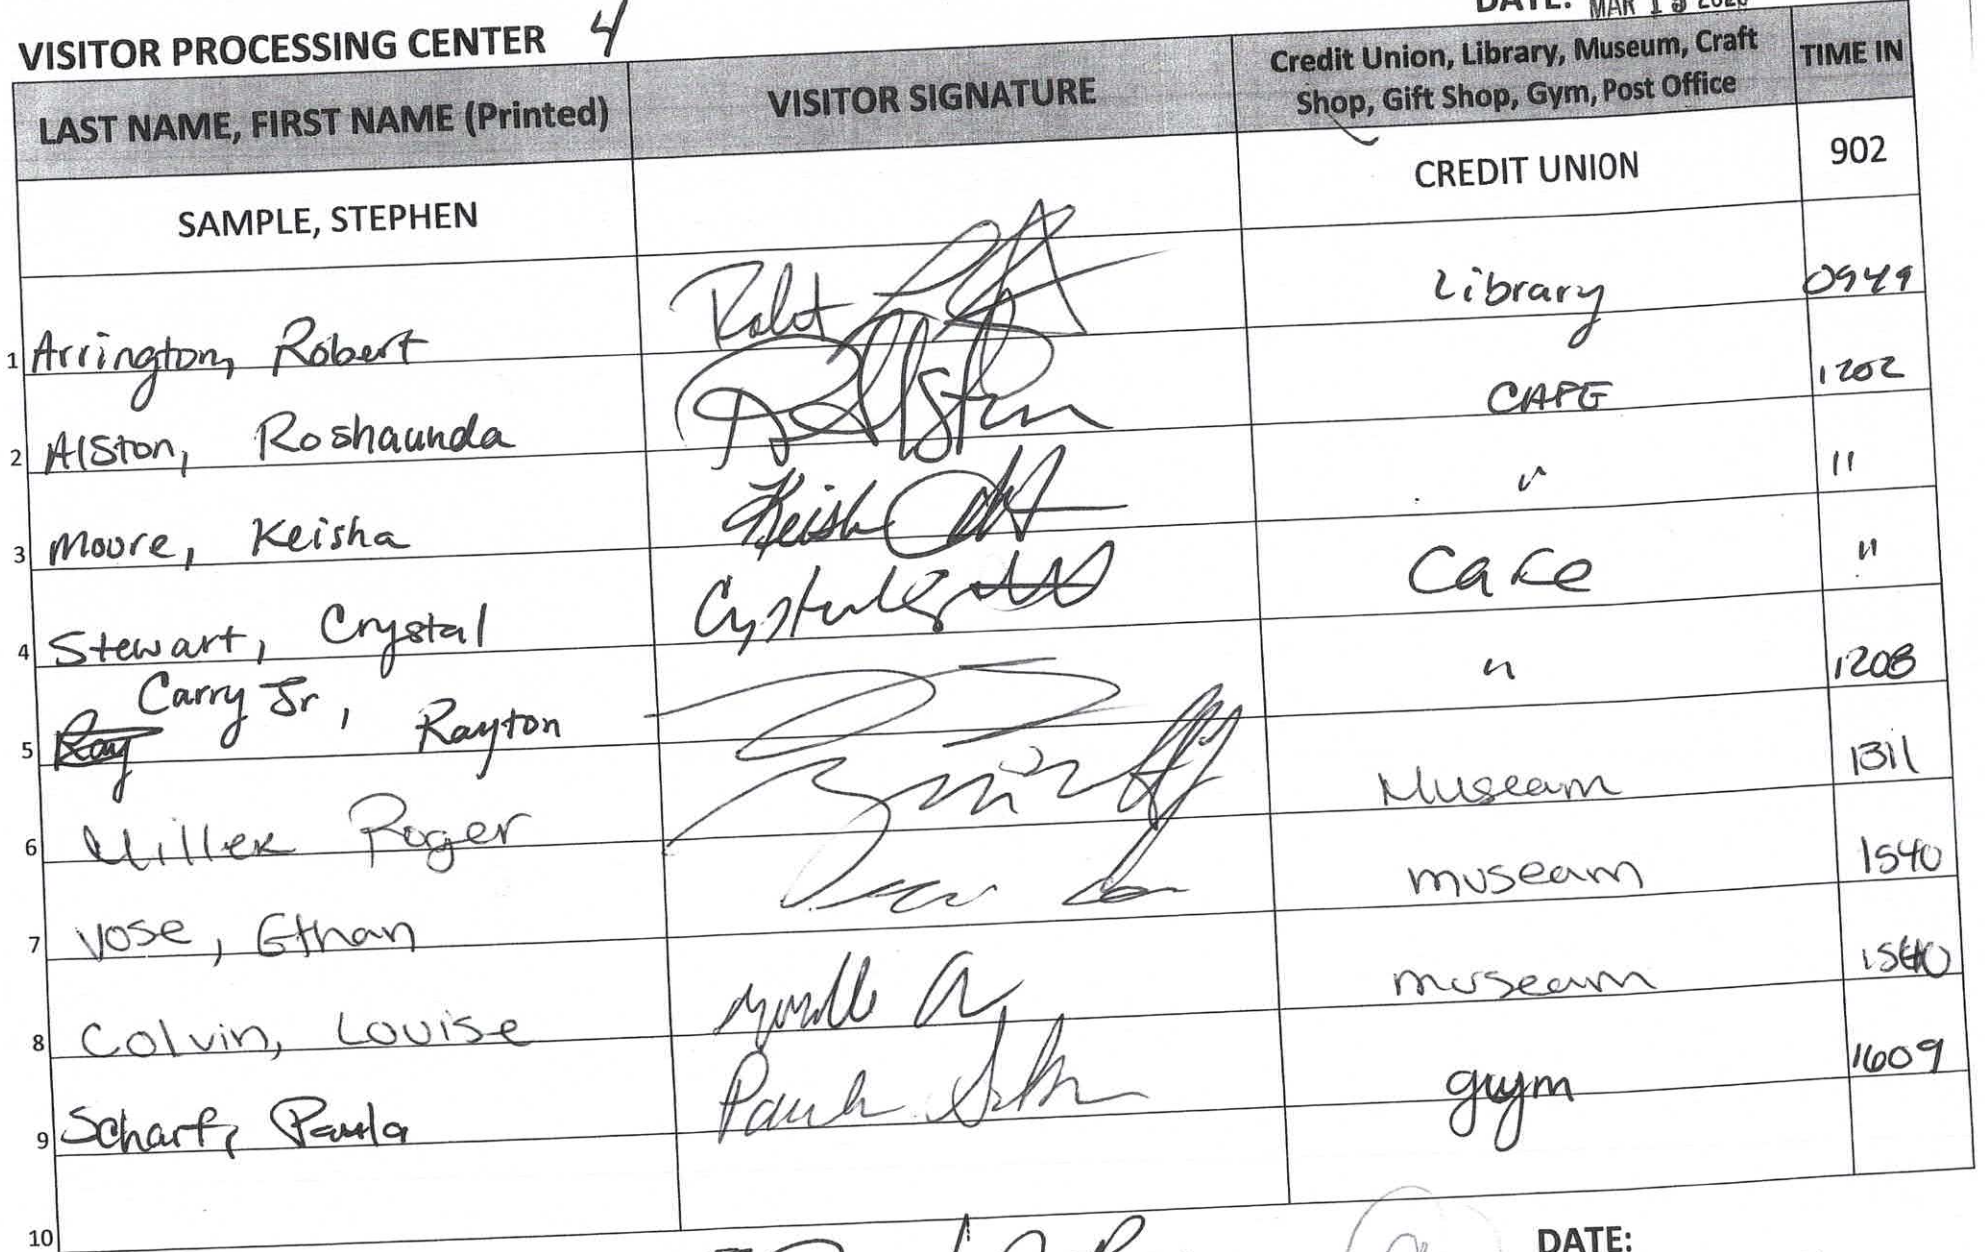 DATE: MAR 1
VISITOR PROCESSING CENTER 4
LAST NAME, FIRST NAME (Printed) VISITOR SIGNATURE Credit Union, Library, Museum, Craft Shop, Gift Shop, Gym, Post Office TIME IN
SAMPLE, STEPHEN CREDIT UNION 902
1 Arrington, Robert Library 0949
2 Alston, Roshaunda CAFE 1202
3 Moore, Keisha " "
4 Stewart, Crystal Cafe "
5 Ray Carry Jr, Rayton " 1208
6 Miller Roger Museam 1311
7 Vose, Ethan museam 1540
8 Colvin, Louise museam 1540
9 Scharf, Paula Paula gym 1609
10
DATE: